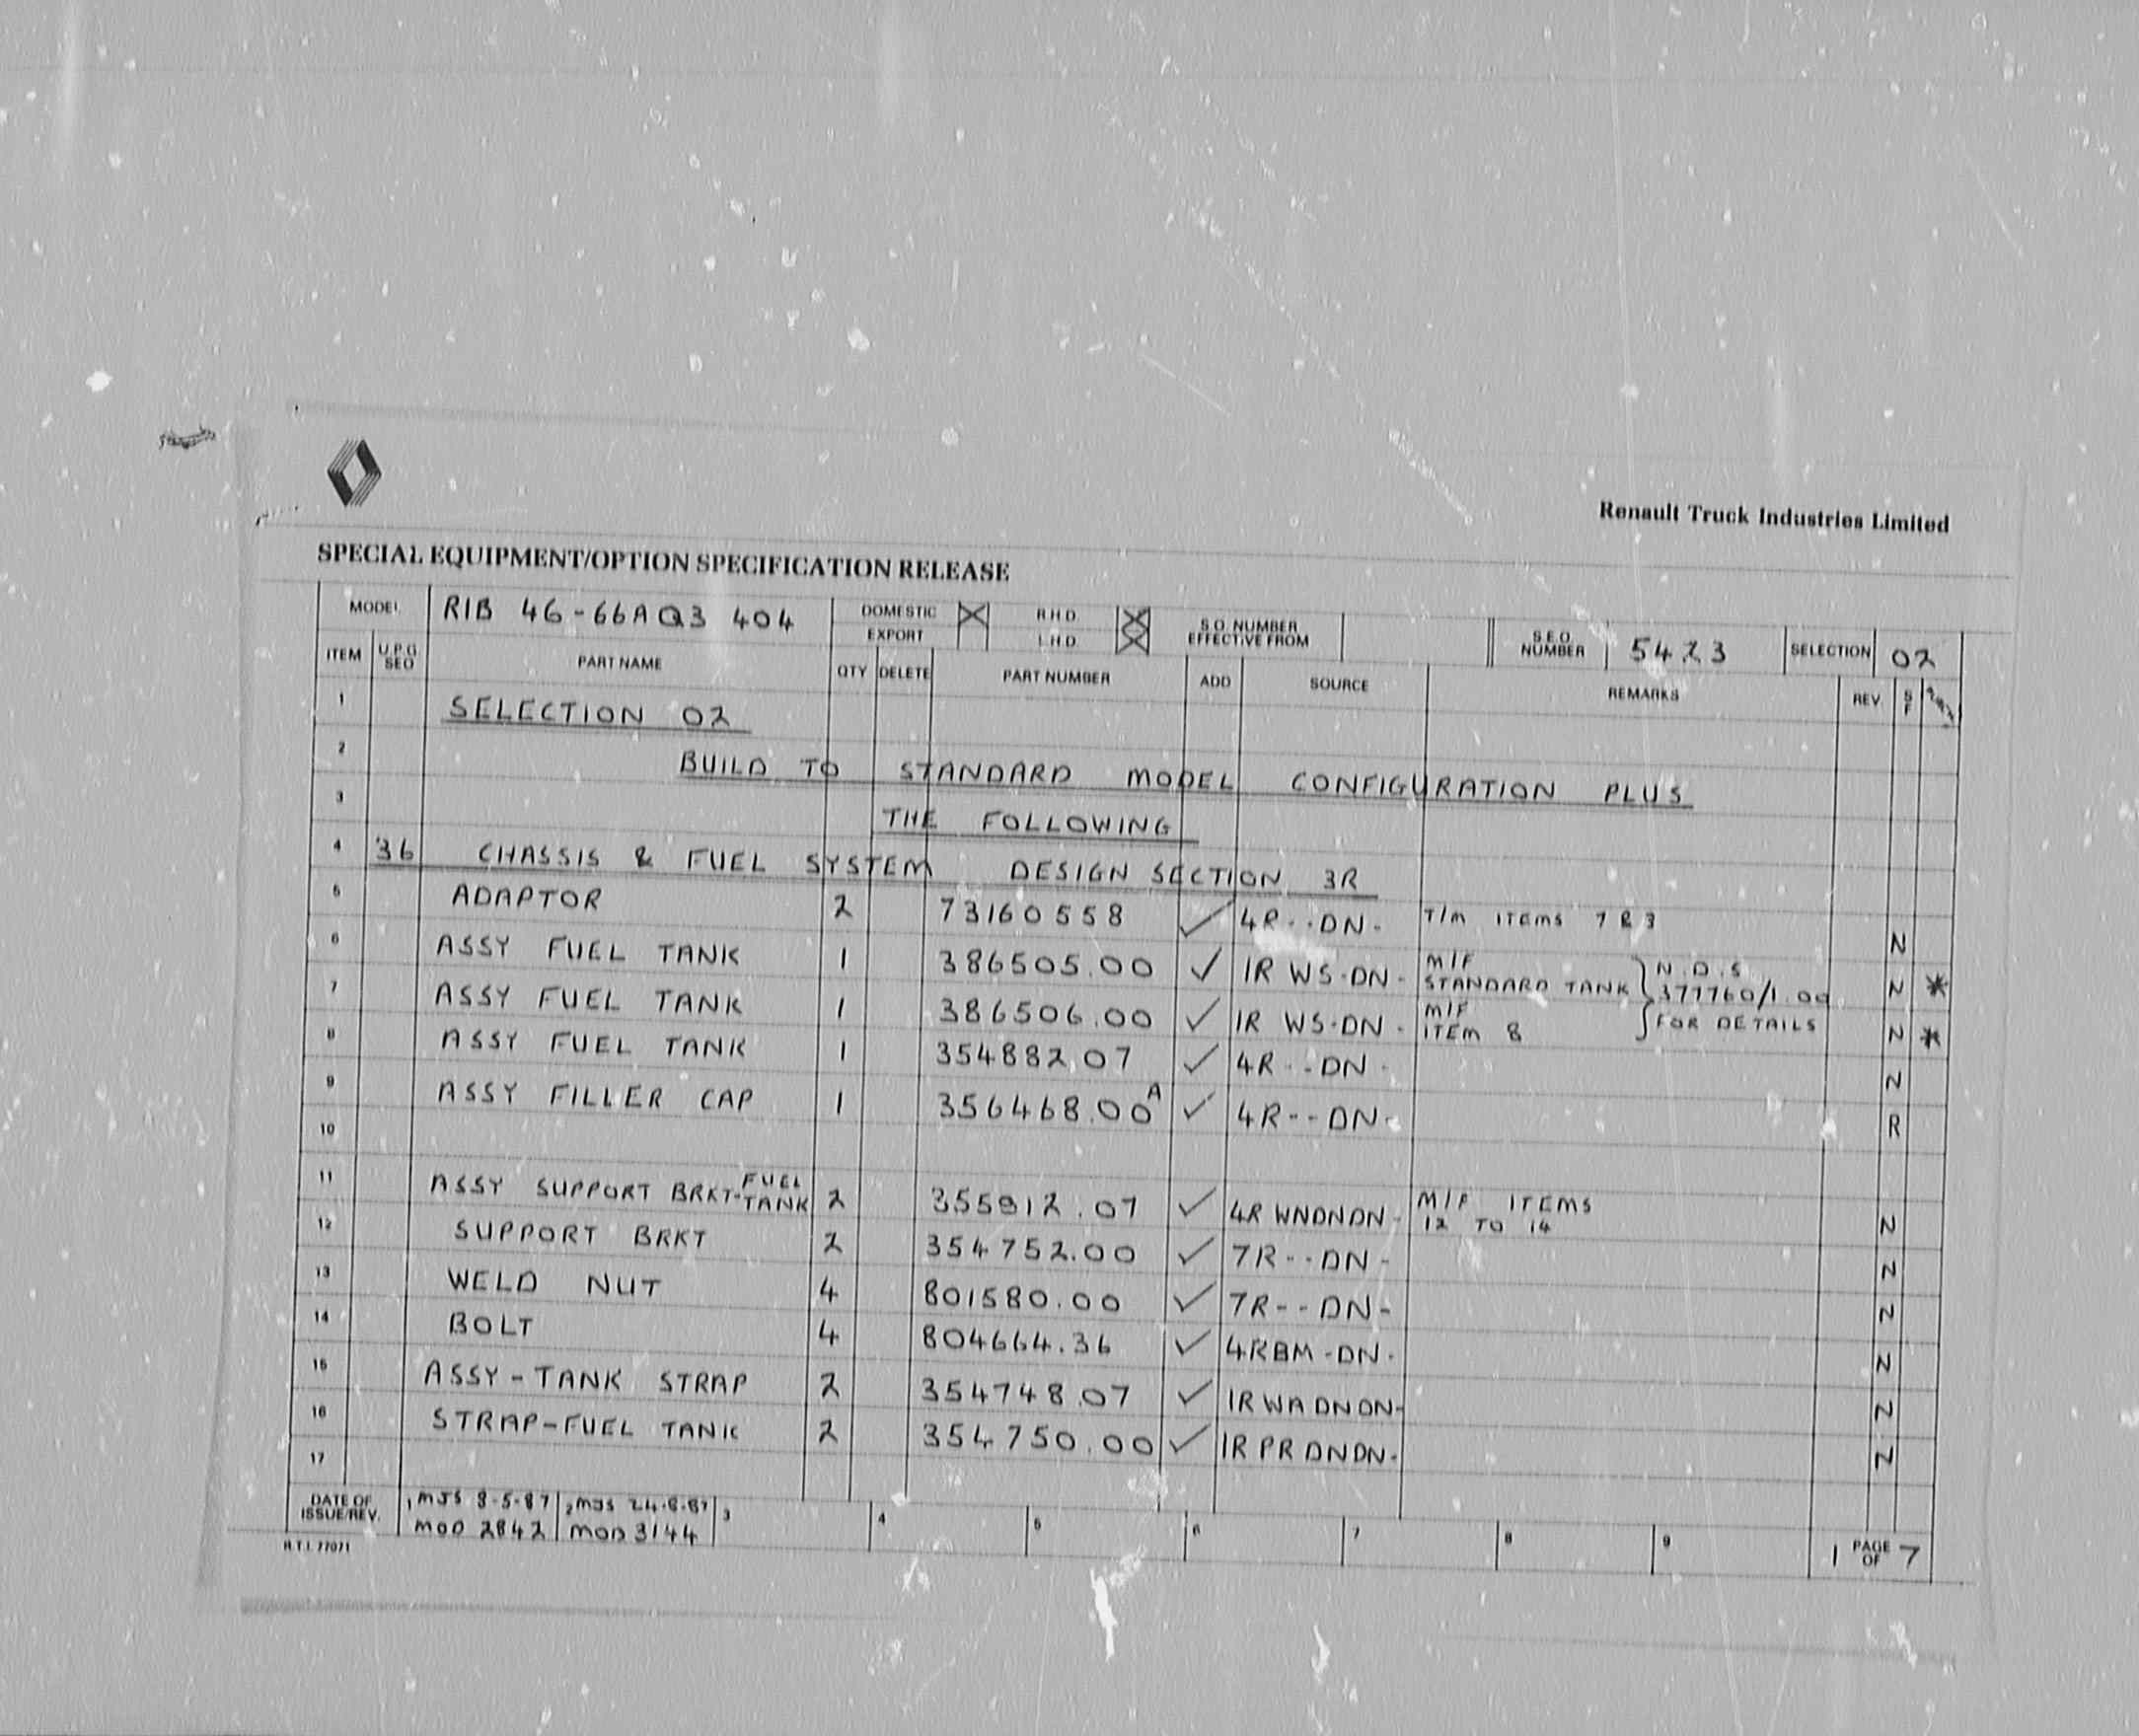 Renault Truck Industries Limited
SPECIAL EQUIPMENT/OPTION SPECIFICATION RELEASE
MODEL RIB 46-66AQ3 404 DOMESTIC R.H.D. S.O. NUMBER EFFECTIVE FROM S.E.O. NUMBER 5423 SELECTION 02
EXPORT L.H.D.
ITEM U.P.G. SEO PART NAME QTY DELETE PART NUMBER ADD SOURCE REMARKS REV S F
1 SELECTION 02
2 BUILD TO STANDARD MODEL CONFIGURATION PLUS
3 THE FOLLOWING
4 36 CHASSIS & FUEL SYSTEM DESIGN SECTION 3R
5 ADAPTOR 2 73160558 ✓ 4R--DN- T/M ITEMS 7 & 3 N
6 ASSY FUEL TANK 1 386505.00 ✓ 1R WS-DN- M/F STANDARD TANK } N.D.S 377760/1.00 N *
7 ASSY FUEL TANK 1 386506.00 ✓ 1R WS-DN- M/F ITEM 8 } FOR DETAILS N *
8 ASSY FUEL TANK 1 354882.07 ✓ 4R--DN- N
9 ASSY FILLER CAP 1 356468.00A ✓ 4R--DN- R
10
11 ASSY SUPPORT BRKT-FUEL TANK 2 355912.07 ✓ 4R WNDNDN- M/F ITEMS 12 TO 14 N
12 SUPPORT BRKT 2 354752.00 ✓ 7R--DN- N
13 WELD NUT 4 801580.00 ✓ 7R--DN- N
14 BOLT 4 804664.36 ✓ 4RBM-DN- N
15 ASSY-TANK STRAP 2 354748.07 ✓ 1RWADNDN- N
16 STRAP-FUEL TANK 2 354750.00 ✓ 1RPRDNDN- N
17
DATE OF ISSUE/REV. 1 MJS 8-5-87 2 MJS 24.8.87 3 4 5 6 7 8 9 1 PAGE OF 7
MOD 2842 MOD 3144
R.T.I. 77071